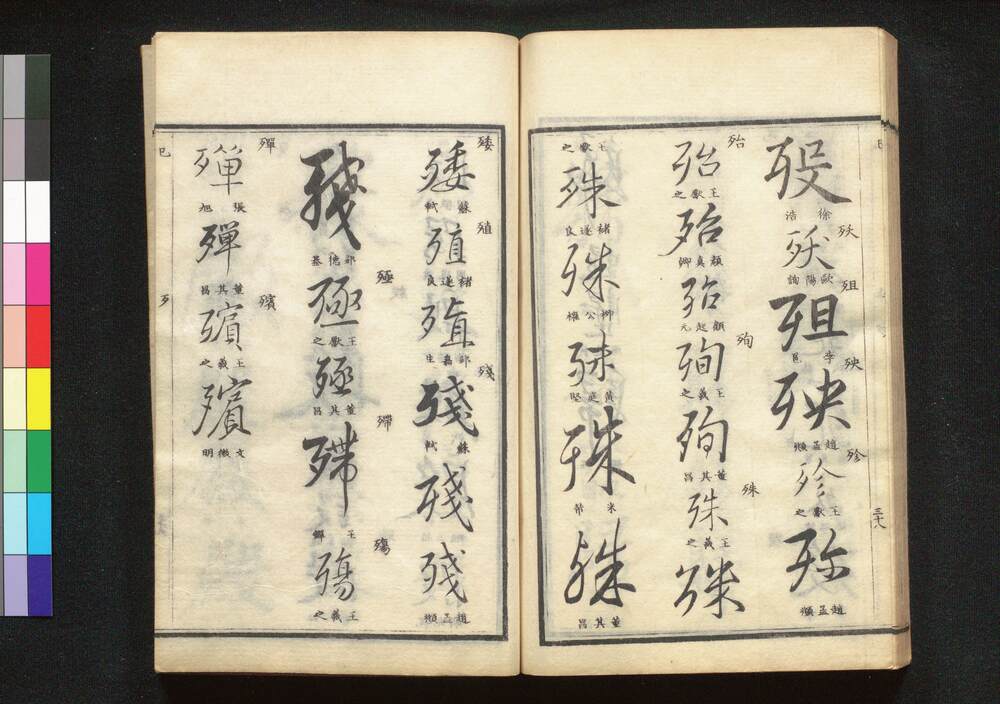 歿
徐浩
殀
殀
歐陽詢
殂
殂
李邕
殃
殃
趙孟頫
殄
殄
王獻之
殄
趙孟頫
三十八
殆
殆
王獻之
殆
顏真卿
殆
顧起元
殉
殉
王羲之
殉
董其昌
殊
殊
王羲之
殊
王獻之
殊
褚遂良
殊
柳公權
殊
黃庭堅
殊
米芾
殊
董其昌
㱣
㱣
蘇軾
殖
殖
褚遂良
殖
殘
殘
蘇軾
殘
殘
趙孟頫
殘
殛
殛
王獻之
殛
董其昌
殢
殢
殤
殤
王羲之
殫
殫
張旭
殫
董其昌
殯
殯
王羲之
殯
文徵明
巳
歹